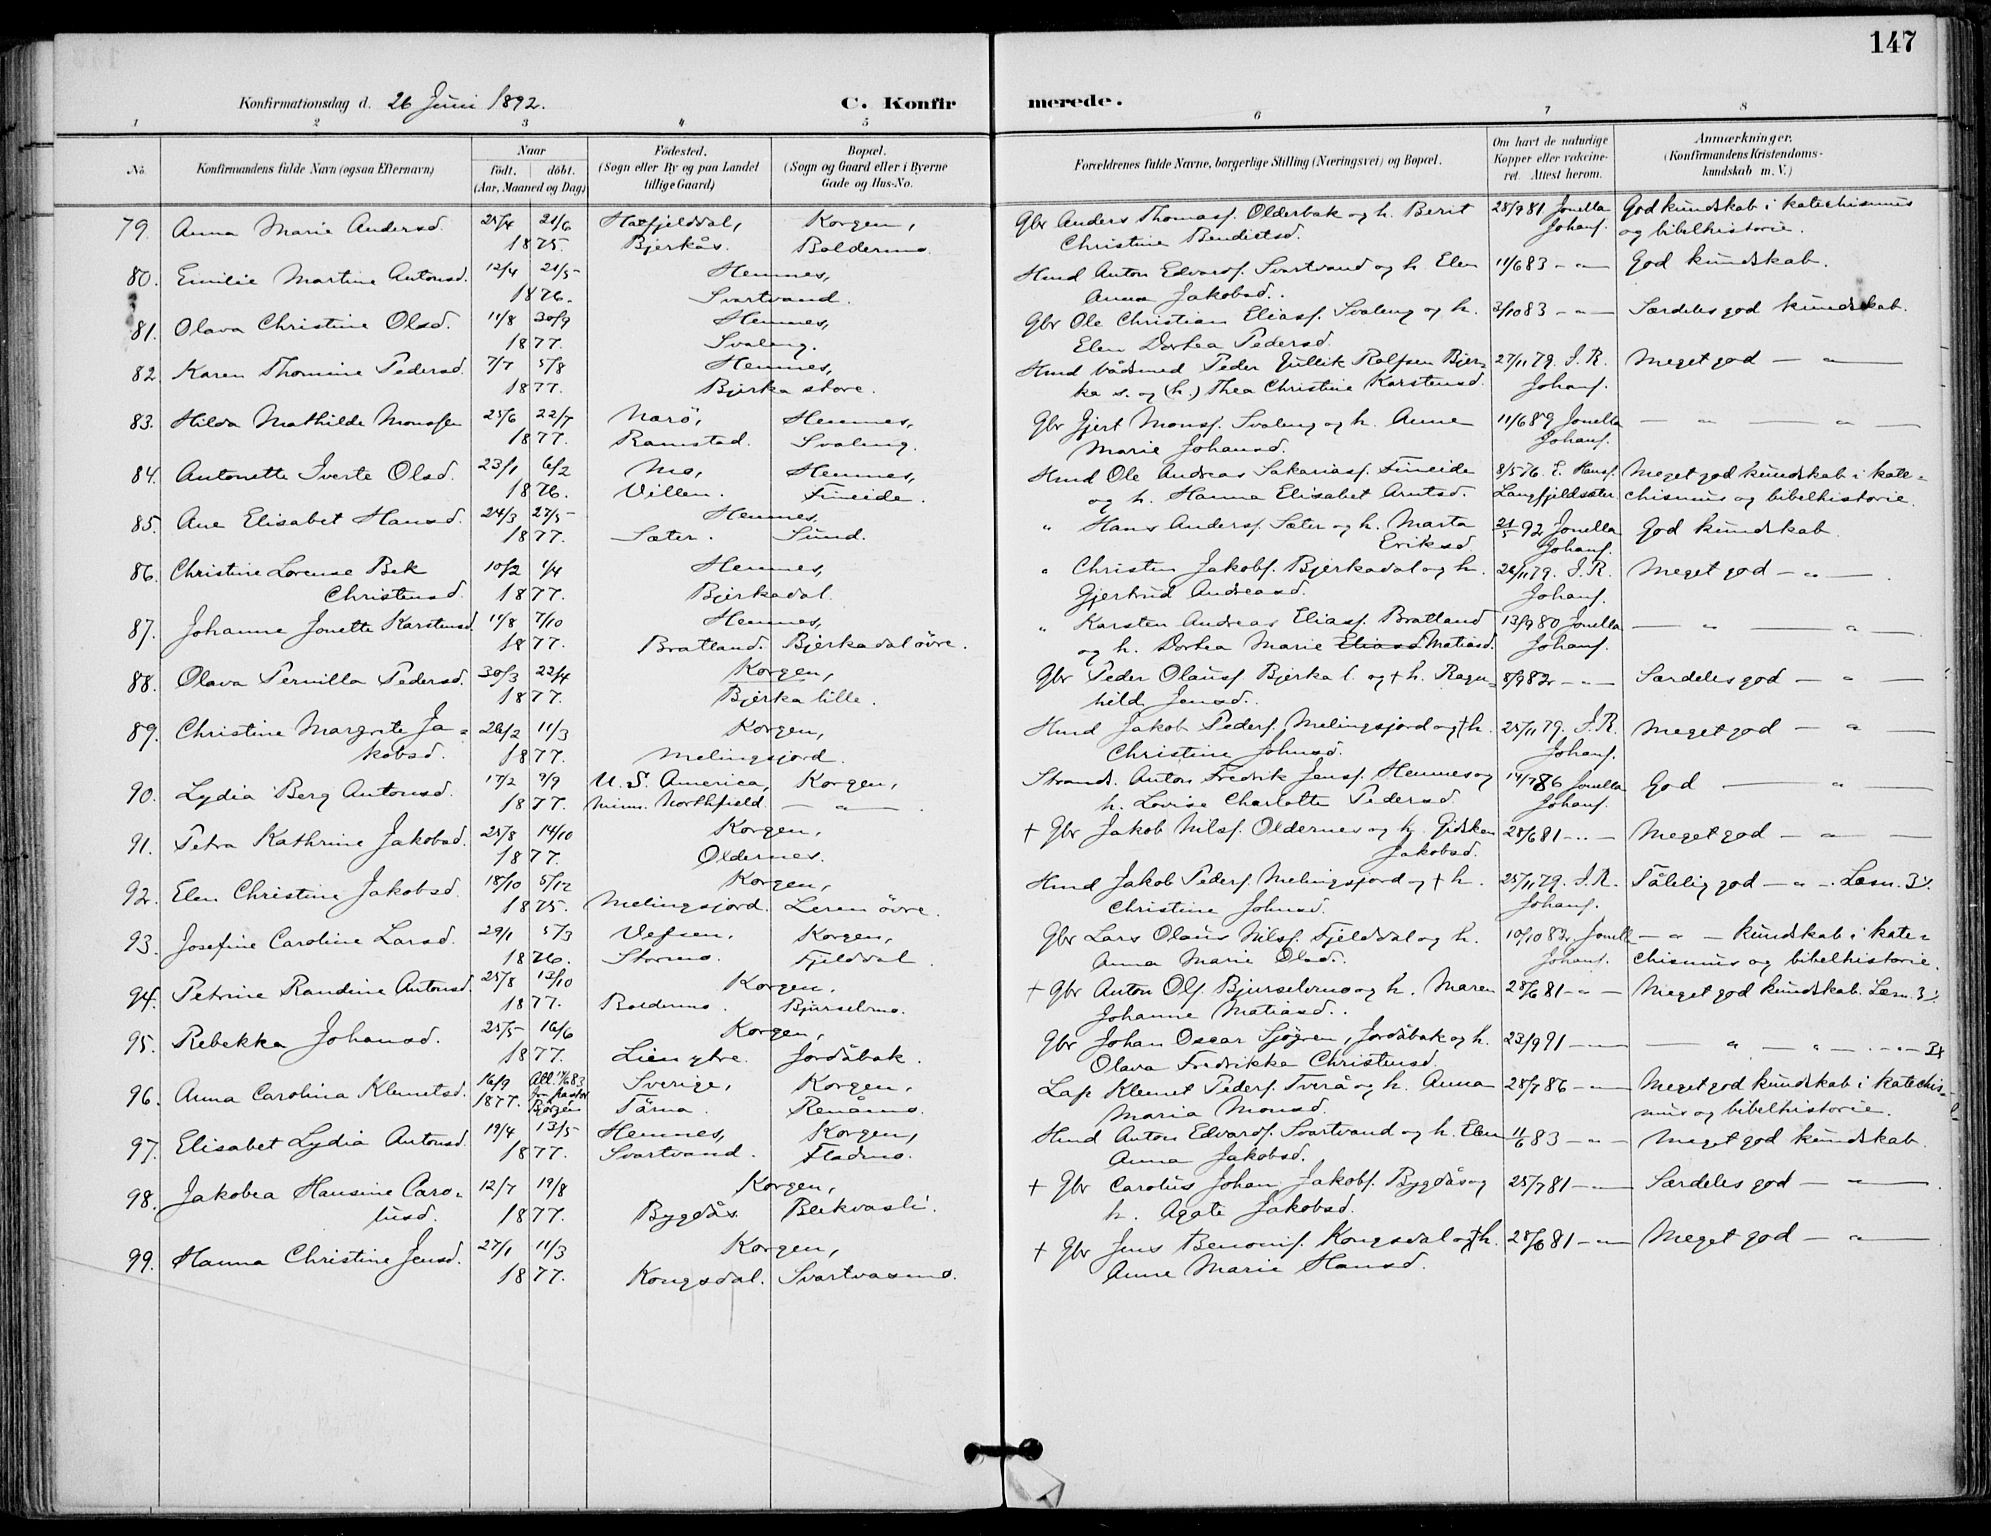 147
Konfirmationsdag d. 26 Juni 1892. C. Konfirmerede.
1 2 3 4 5 6 7 8
No. Konfirmandens fulde Navn (ogsaa Efternavn) Naar født. døbt. (Aar, Maaned og Dag) Fødested. (Sogn eller By og paa Landet tillige Gaard) Bopæl. (Sogn og Gaard eller i Byerne Gade og Hus-No. Forældrenes fulde Navne, borgerlige Stilling (Næringsvei) og Bopæl. Om havt de naturlige Kopper eller vakcineret. Attest herom. Anmærkninger. (Konfirmandens Kristendomskundskab m. V.)
79. Anna Marie Andersd. 25/4 21/6 Hatfjelddal, Korgen, Gbr Anders Thomasf. Olderbak og h. Berit 28/9 81 Jonella God kundskab i katechismus
1875. Bjerkås. Boldermo. Christine Bendictsd. Johanf. og bibelhistorie.
80. Emilie Martine Antonsd. 12/4 21/5 Hemnes, Hmd Anton Edvardf. Svartvand og h. Elen 11/6 83 - " - God kundskab.
1876. Svartvand. Anna Jakobsd.
81. Olava Christine Olsd. 11/8 30/9 Hemnes, Gbr Ole Christian Eliasf. Svaleng og h. 3/10 83 - " - Særdeles god kundskab.
1877. Svaleng. Elen Dorthea Pedersd.
82. Karen Thomine Pedersd. 7/7 5/8 Hemnes, Hmd bådsmd Peder Gullik Rolfsen Bjer- 27/11 79. I. R. Meget god - " -
1877. Bjerka store. ka s. og (h.) Thea Christine Karstensd. Johanf.
83. Hilda Mathilde Monsfen 25/6 22/7 Nærö, Hemnes, Gbr Gjert Monsf. Svaleng og h. Anne 11/6 89 Jonella - " - " -
1877. Ramstad. Svaleng. Marie Johansd. Johanf.
84. Antonette Iverte Olsd. 23/1 6/2 Mo, Hemnes, Hmd Ole Andreas Sakariasf. Fineide 8/5 76. E. Hansf. Meget god kundskab i kate-
1876. Villen. Fineide. og h. Hanna Elisabet Arntsd. Langfjeldsæter. chismus og bibelhistorie.
85. Ane Elisabet Hansd. 24/3 27/5 Hemnes, " Hans Andersf. Sæter og h. Marta 21/5 92 Jonella God kundskab.
1877. Sæter. Sund. Eriksd. Johanf.
86. Christine Lorense Bek 10/2 1/4 Hemnes, " Christen Jakobf. Bjerkadal og h. 26/11 79. I. R. Meget god - " -
Christensd. 1877. Bjerkadal. Gjertrud Andreasd. Johanf.
87. Johanne Jonette Karstensd. 11/8 7/10 Hemnes, " Karsten Andreas Eliasf. Bratland 13/9 80 Jonella - " - " -
1877. Bratland. Bjerkadal övre. og h. Dorhea Marie Eliasd Matiasd. Johanf.
88. Olava Pernilla Pedersd. 30/3 22/4 Korgen, Gbr Peder Olausf. Bjerka l. og † h. Ragn- 8/9 82 - " - Særdeles god - " -
1877. Bjerka lille. hild Jensd.
89. Christine Margrete Ja- 26/2 11/3 Korgen, Hmd Jakob Pedersf. Melingsjord og † h. 25/11 79. I. R. Meget god - " -
kobsd. 1877. Melingsjord. Christine Johnsd. Johanf.
90. Lydia Berg Antonsd. 17/2 9/9 U. S. America, Korgen, Strands. Anton Fredrik Jensf. Hemnes og 14/7 86 Jonella God - " -
1877. Minn. Northfield. - " - h. Lovise Charlotte Pedersd. Johanf.
91. Petra Kathrine Jakobsd. 25/8 14/10 Korgen, † Gbr Jakob Nilsf. Oldernes og h. Gidsken 28/6 81 - " - Meget god - " -
1877. Oldernes. Jakobsd.
92. Elen Christine Jakobsd. 18/10 5/12 Korgen, Hmd Jakob Pedersf. Melingsjord og † h. 25/11 79. I. R. Tålelig god - " - Læsn. 3%
1875. Melingsjord. Leren övre. Christine Johnsd. Johanf.
93. Josefine Caroline Larsd. 29/1 5/3 Vefsen, Korgen, Gbr Lars Olaus Nilsf. Fjelddal og h. 10/10 82 Jonella - " - kundskab i kate-
1876. Stormo. Fjelddal. Anna Marie Olsd. Johanf. chismus og bibelhistorie.
94. Petrine Randine Antonsd. 25/8 13/10 Korgen, † Gbr Anton Olf. Bjurselvmo og h. Maren 28/6 81 - " - Meget god kundskab. Læsn. 3%
1877. Boldermo. Bjurselvmo. Johanne Matiasd.
95. Rebekka Johansd. 25/5 16/6 Korgen, Gbr Johan Oscar Sjögren, Jordåbak og h. 23/9 91 - " - - " - " - " - 3%
1877. Lien ytre. Jordåbak. Olava Fredrikke Christensd.
96. Anna Carolina Klemetsd. 16/9 Att. 17/6 83 Sverige, Korgen, Lap Klemet Pedersf. Tverå og h. Anna 28/7 86 - " - Meget god kundskab i katechis-
1877. fra pastor Björgén Tärna. Renåmo. Maria Monsd. mus og bibelhistorie.
97. Elisabet Lydia Antonsd. 19/4 13/5 Hemnes, Korgen, Hmd Anton Edvardf. Svartvand og h. Elen 11/6 83 - " - Meget god kundskab.
1877. Svartvand. Fladmo. Anna Jakobsd.
98. Jakobea Hansine Caro- 12/7 19/8 Korgen, † Gbr Carolus Johan Jakobf. Bygdås og 25/7 81 - " - Særdeles god - " -
lusd. 1877. Bygdås. Blekvasli. h. Agate Jakobsd.
99. Hanna Christine Jensd. 27/1 11/3 Korgen, † Gbr Jens Benonif. Kongsdal og † h. 28/6 81 - " - Meget god - " -
1877. Kongsdal. Svartvasmo. Anne Marie Hansd.